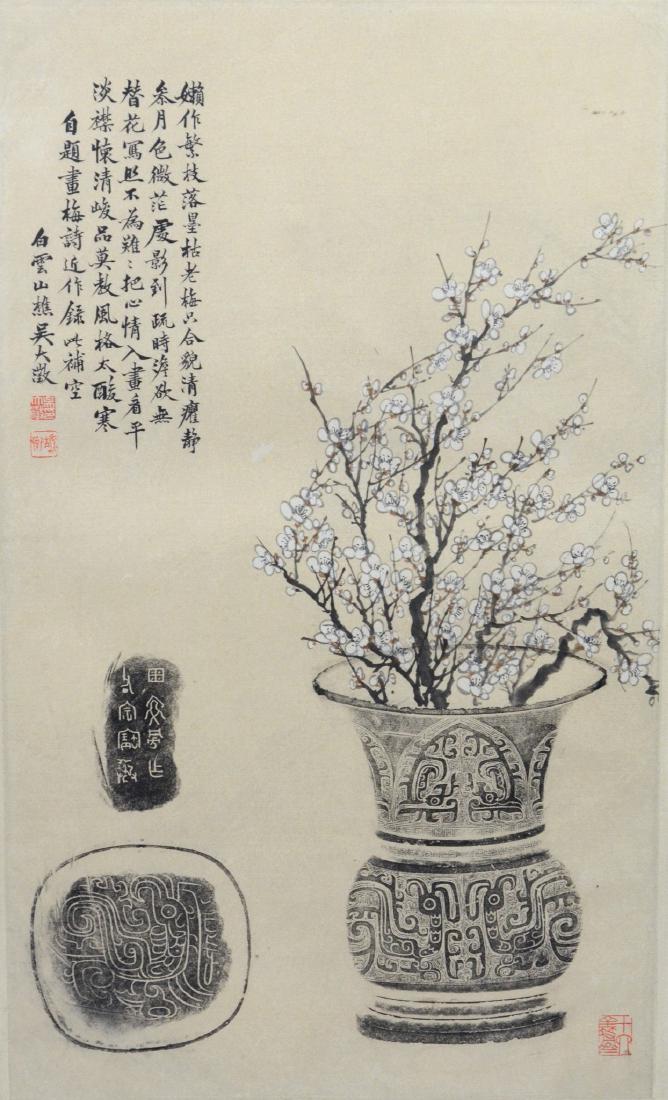 嬾作繁枝落墨枯老梅只合貌清癯靜
參月色微茫處影到疏時澹欲無
替花寫照不為難〻把心情入畫看平
淡襟懷清峻品莫教風格太酸寒
自題畫梅詩近作錄此補空
白雲山樵吳大澂